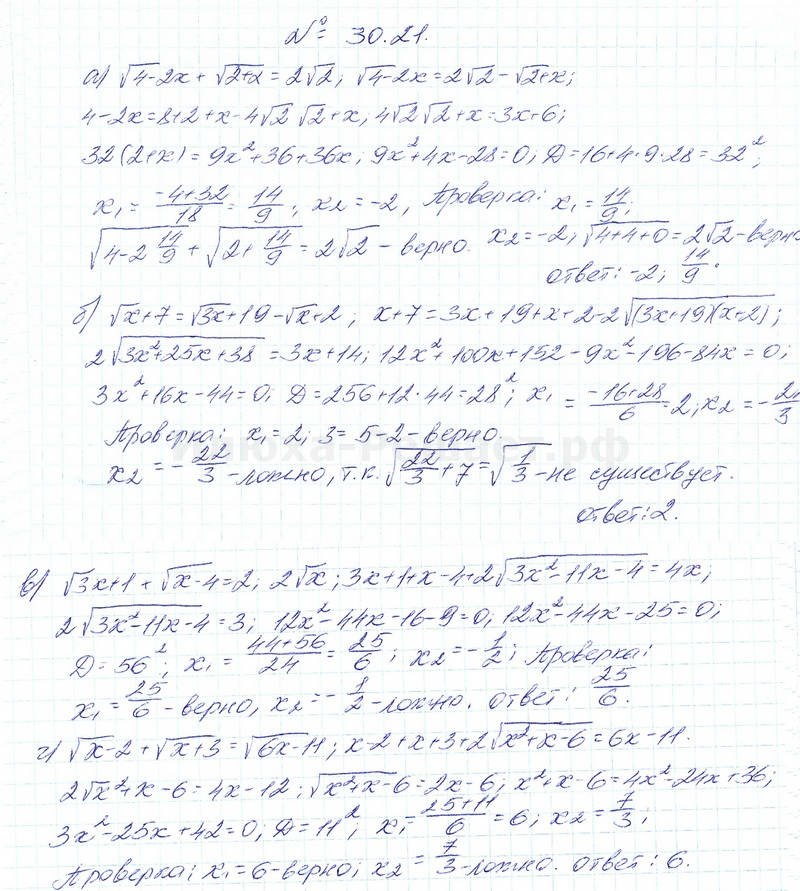 № 30.21.
а) √4-2x + √2+2 = 2√2; √4-2x = 2√2 - √2+x;
4-2x = 8+2+x-4√2 √2+x, 4√2√2+x = 3x+6;
32(2+x) = 9x²+36+36x; 9x²+4x-28=0; D=16+4·9·28=32²;
x₁ = (-4+32)/18 = 14/9; x₂=-2, Проверка: x₁ = 14/9;
√(4-2 14/9) + √(2+14/9) = 2√2 - верно. x₂=-2; √(4+4+0) = 2√2 - верно
ответ: -2; 14/9.
б) √x+7 = √3x+19 - √x+2; x+7 = 3x+19+x+2-2√((3x+19)(x+2));
2√(3x²+25x+38) = 3x+14; 12x²+100x+152-9x²-196-84x=0;
3x²+16x-44=0; D=256+12·44=28²; x₁ = (-16+28)/6 = 2; x₂ = -22/3
Проверка: x₁=2; 3=5-2-верно.
x₂ = -22/3 - ложно, т.к. √(22/3+7) = √(1/3) - не существует.
ответ: 2.
в) √3x+1 + √x-4=2; 2√x; 3x+1+x-4+2√(3x²-11x-4) = 4x;
2√(3x²-11x-4) = 3; 12x²-44x-16-9=0; 12x²-44x-25=0;
D=56²; x₁ = (44+56)/24 = 25/6; x₂ = -1/2; Проверка:
x₁ = 25/6 - верно, x₂ = -1/2 - ложно. ответ: 25/6.
г) √x-2 + √x+3 = √6x-11; x-2+x+3+2√(x²+x-6) = 6x-11.
2√x²+x-6 = 4x-12; √x²+x-6 = 2x-6; x²+x-6=4x²-24x+36;
3x²-25x+42=0; D=11²; x₁ = (25+11)/6 = 6; x₂ = 7/3;
Проверка; x₁=6-верно; x₂ = 7/3 - ложно. ответ: 6.